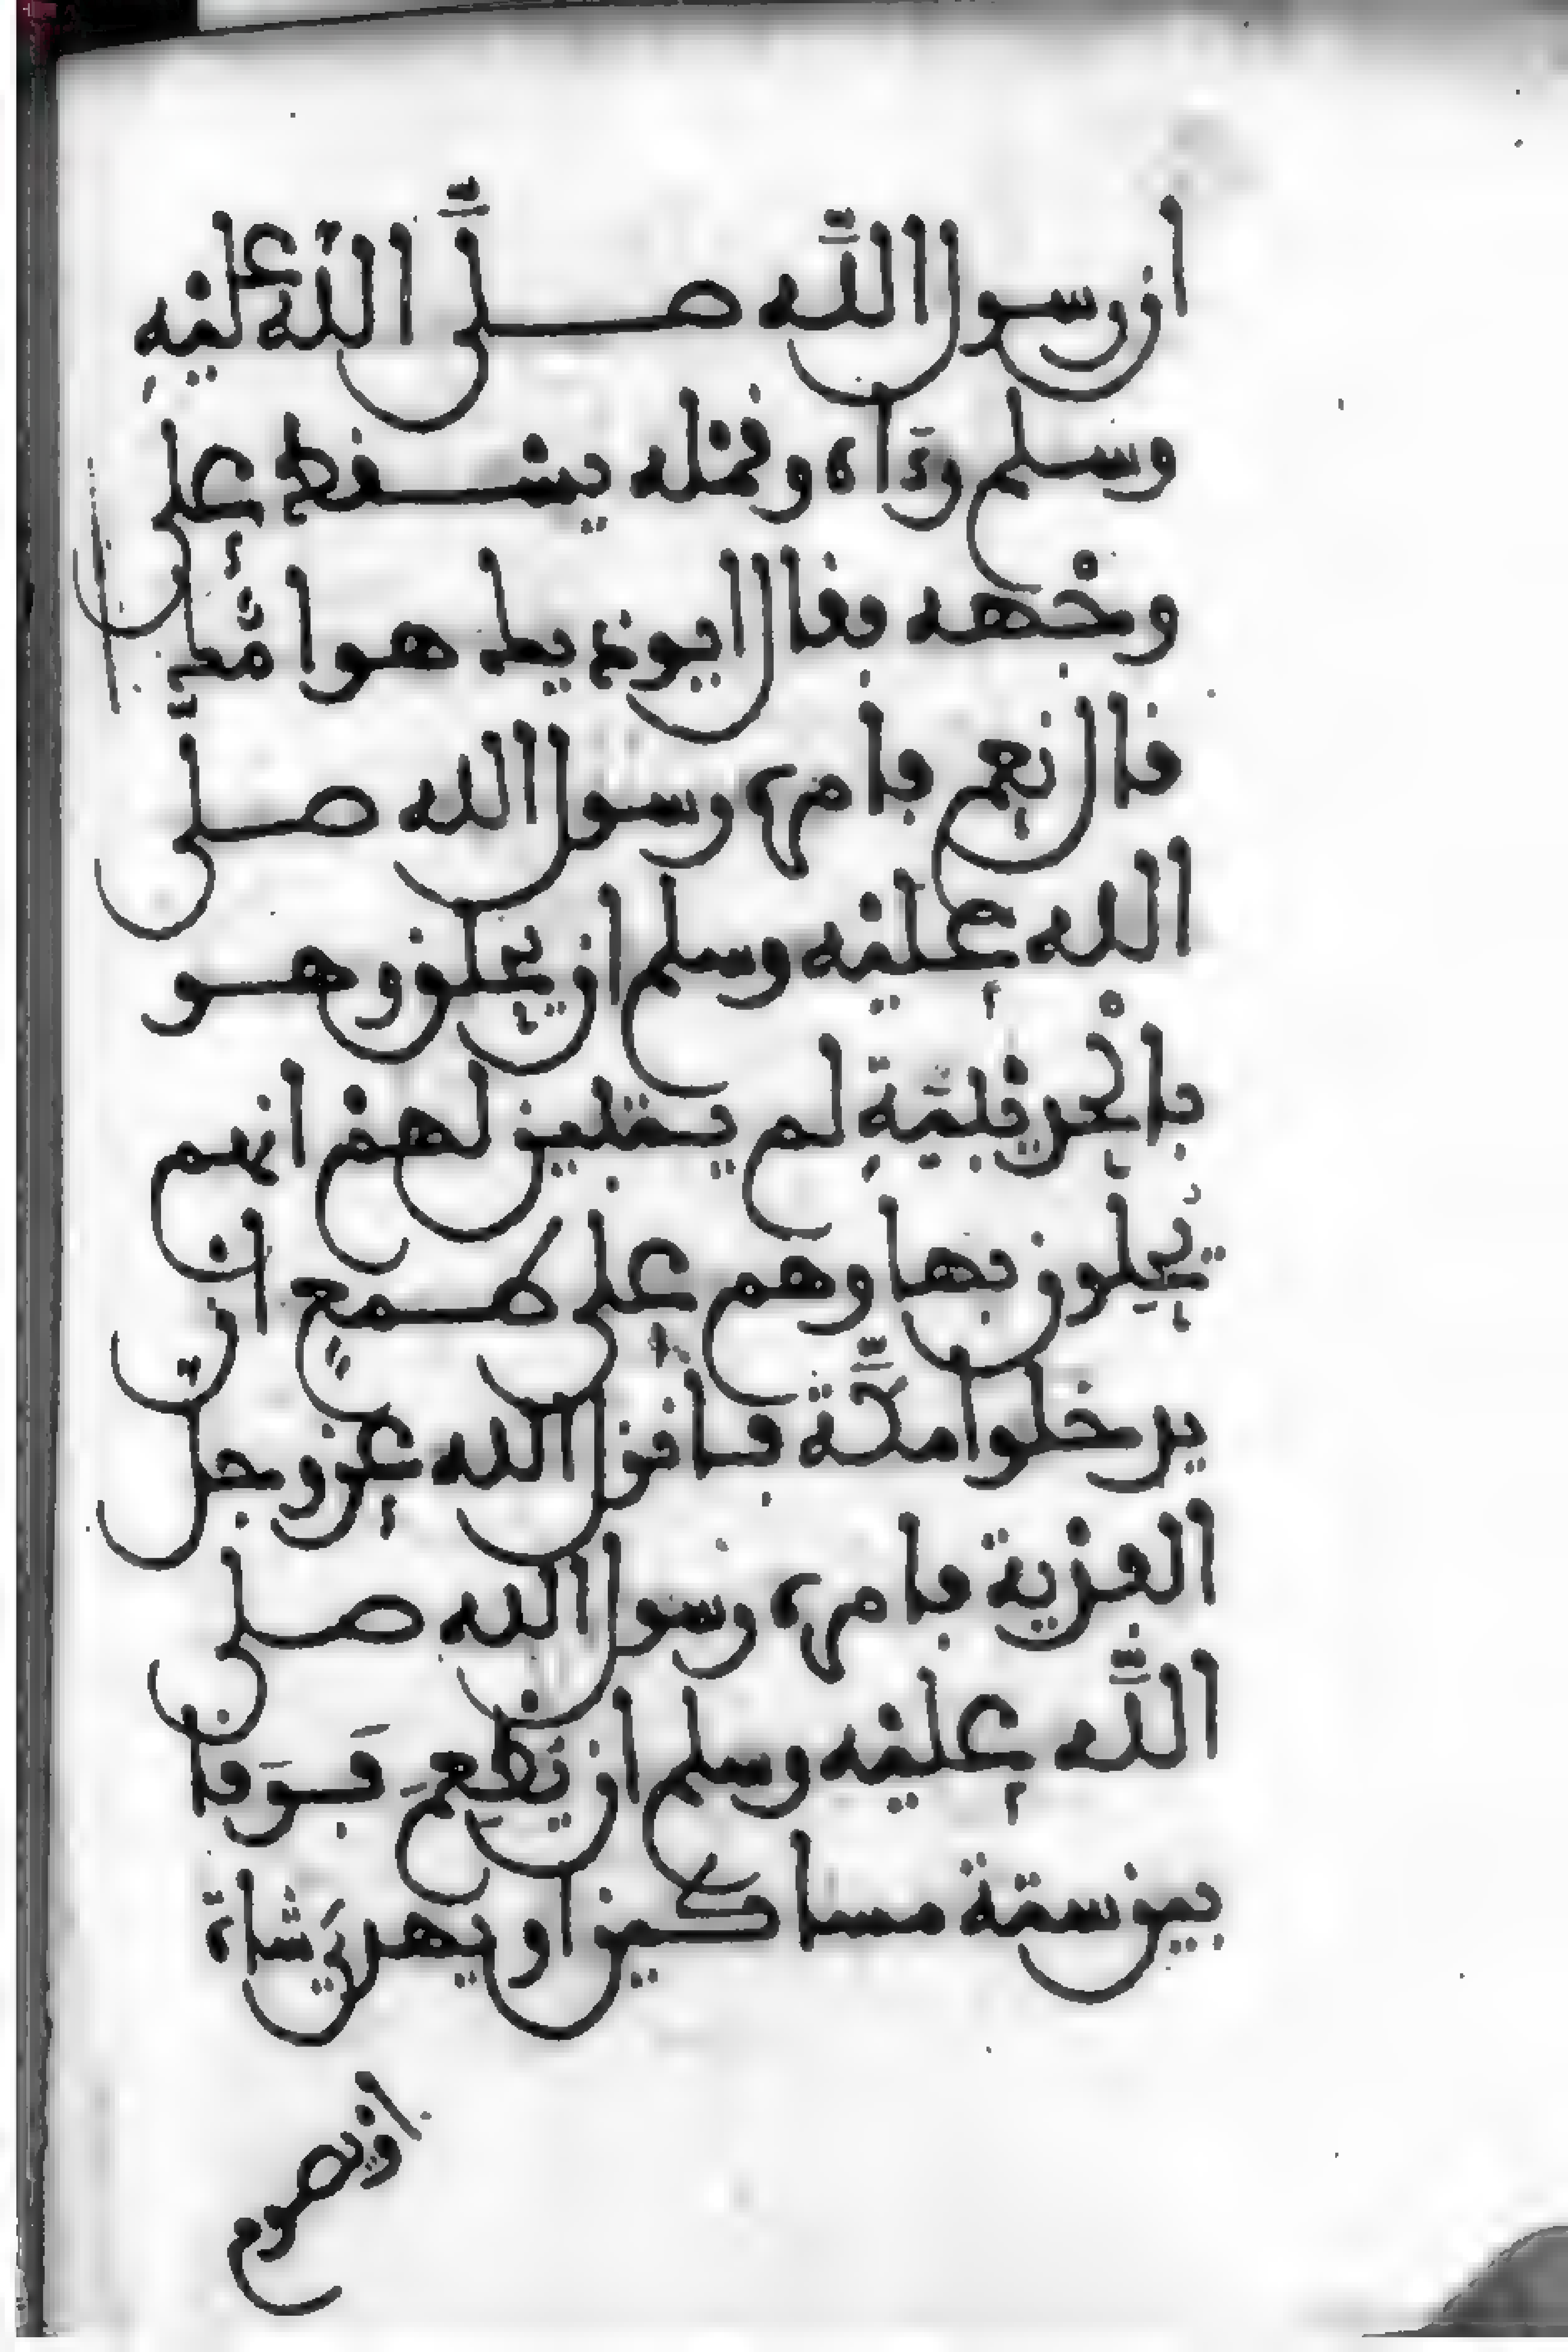 ان رسول الله صلى الله عليه
وسلم رءاه وقمله يسقط على
وجهه فقال ايوذيك هوامك
قال نعم فامره رسول الله صلى
الله عليه وسلم ان يحلق وهو
بالحديبية لم يتبين لهم انهم
يحلون بها وهم على طمع ان
يدخلوا مكة فانزل الله عز وجل
الفدية فامره رسول الله صلى
الله عليه وسلم ان يطعم فرقا
بين ستة مساكين او يهدي شاة
او يصوم